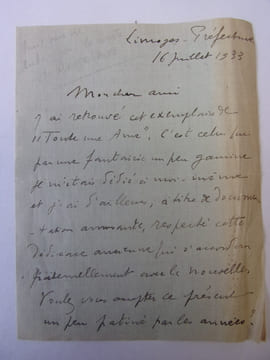 Limoges - Préfecture
16 juillet 1933
Mon cher ami
J'ai retrouvé cet exemplaire de
"Toute une Ame". C'est celui que
par une fantaisie un peu gamine
je m'étais dédié à moi-même
et j'ai d'ailleurs, à titre de documen
-tation amusante, respecté cette
dédicace ancienne qui s'accordera
fraternellement avec la nouvelle.
Voulez vous accepter ce présent
un peu patiné par les années?